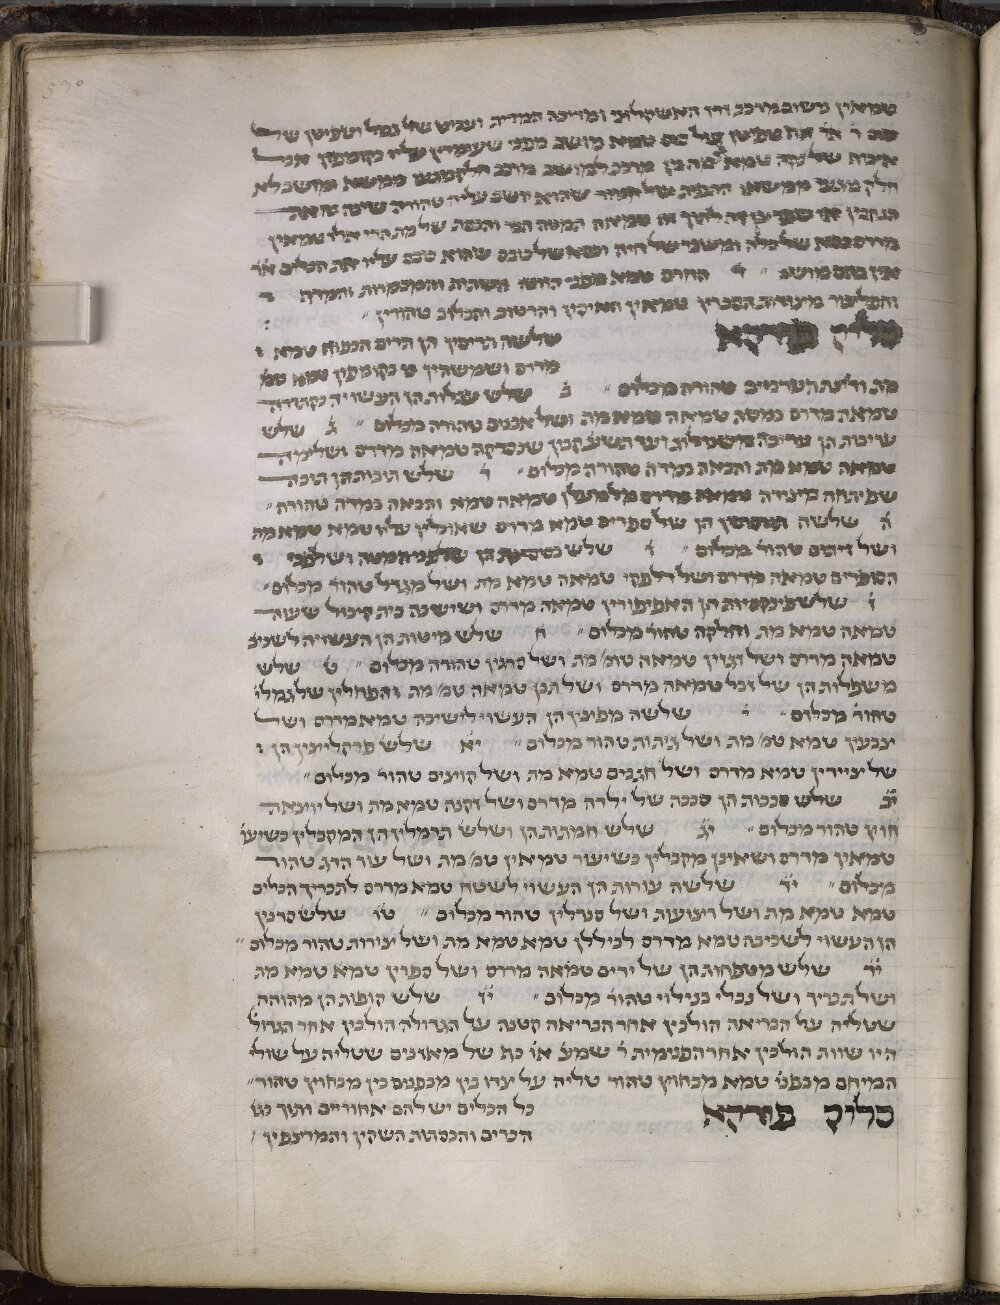 טמאין משום מרכב זרז האשקלוני ומדוכה המדיית ועביט של גמל וטפיטן של
סוס ר' או' אף טפיטן של סוס טמא מושב מפני שעומדין עליו בקומפון אבל
איכוף של נקה טמא מה בין מרכב למושב מרכב חלק מגעו ממשאו ומושב לא
חלק מגעו ממשאו התפית של חמור שהוא יושב עליה טהורה שינה בה את
הנקבין או שפרצן זה לתוך זה טמאה המטה הכר והכסת של מת הרי אלו טמאין
מדרס כסא של כלה ומשבר של חיה וכסא של כובס שהוא כורם עליו את הכלים א'ר
אין בהם מושב ד החרם טמא מפני החיצון הרשתות והמכמרות והמדף
והפלצור מצודות הסכרין טמאין האקון והרטוב והכלוב טהורין
סליק פירקא שלשה תריסין הן תריס הכפוף טמא
מדרס ושמשחקין בו בקומפון טמא טמ'
מת ודיצת הערביים טהורה מכלום ב שלש עגלות הן העשויה כקתדרה
טמאה מדרס כמטה טמאה טמא מת ושל אבנים טהורה מכלום ג שלש
עריבות הן עריבה משני לוגין ועד תשעה קבין שנסדקה טמאה מדרס ושלימה
טמאה טמא מת והבאה במדה טהורה מכלום ד שלש תיבות הן תיבה
שפיתחה מצידה טמאה מדרס מלמעלן טמאה טמא והבאה במדה טהורה
ה שלשה תרבוסין הן של ספרים טמא מדרס שאוכלין עליו טמא טמא מת
ושל זיתים טהור מכלום ו שלש בסיסיות הן שלפני המטה ושלפני
הסופרים טמאה מדרס ושל דלפקי טמאה טמא מת ושל מגדל טהור מכלום
ז שלש פינקסיות הן האפיפורין טמאה מדרס ושיש בה בית קיבול שעוה
טמאה טמא מת וחלקה טהור מכלום ח שלש מיטות הן העשויה לשכיב'
טמאה מדרס ושל זגגין טמאה טמ' מת ושל סרגין טהורה מכלום ט שלש
משפלות הן של זבל טמאה מדרס ושל תבן טמאה טמ' מת והפחלץ של גמלי'
טהור מכלום י שלשה מפיצין הן העשוי לישיבה טמא מדרס ושל
צבעין טמא טמ' מת ושל גיתות טהור מכלום יא שלש פרקליינין הן
של ציידין טמא מדרס ושל חגבים טמא מת ושל קוייצים טהור מכלום
יב שלש סבכות הן סבכה של ילדה מדרס ושל זקנה טמא מת ושל יוצאת
חוץ טהור מכלום יג שלש חמתות הן ושלש תרמלין הן המקבלין כשיעו'
טמאין מדרס ושאינן מקבלין כשיעור טמאין טמ' מת ושל עור הדג טהור
מכלום יד שלשה עורות הן העשוי לשטח טמא מדרס לתכריך הכלים
טמא טמא מת ושל רצועות ושל סנדלין טהור מכלום טו שלש סדינין
הן העשוי לשכיבה טמא מדרס לכילון טמא טמא מת ושל צורות טהור מכלום
יו שלש מטפחות הן של ידים טמאה מדרס ושל ספרין טמא טמא מת
ושל תכריך ושל נבלי בני לוי טהור מכלום יז שלש קופות הן מהוהה
שטלייה על הבריאה הולכין אחר הבריאה קטנה על הגדולה הולכין אחר הגדול'
היו שוות הולכין אחר הפנימית ר' שמע' או' כף של מאזנים שטלייה על שולי
המיחם מבפני' טמא מבחוץ טהור טלייה על צדו בין מבפנים בין מבחוץ טהור
סליק פירקא כל הכלים יש להם אחוריים ותוך כגו'
הכרים והכסתות השקין והמרצפין